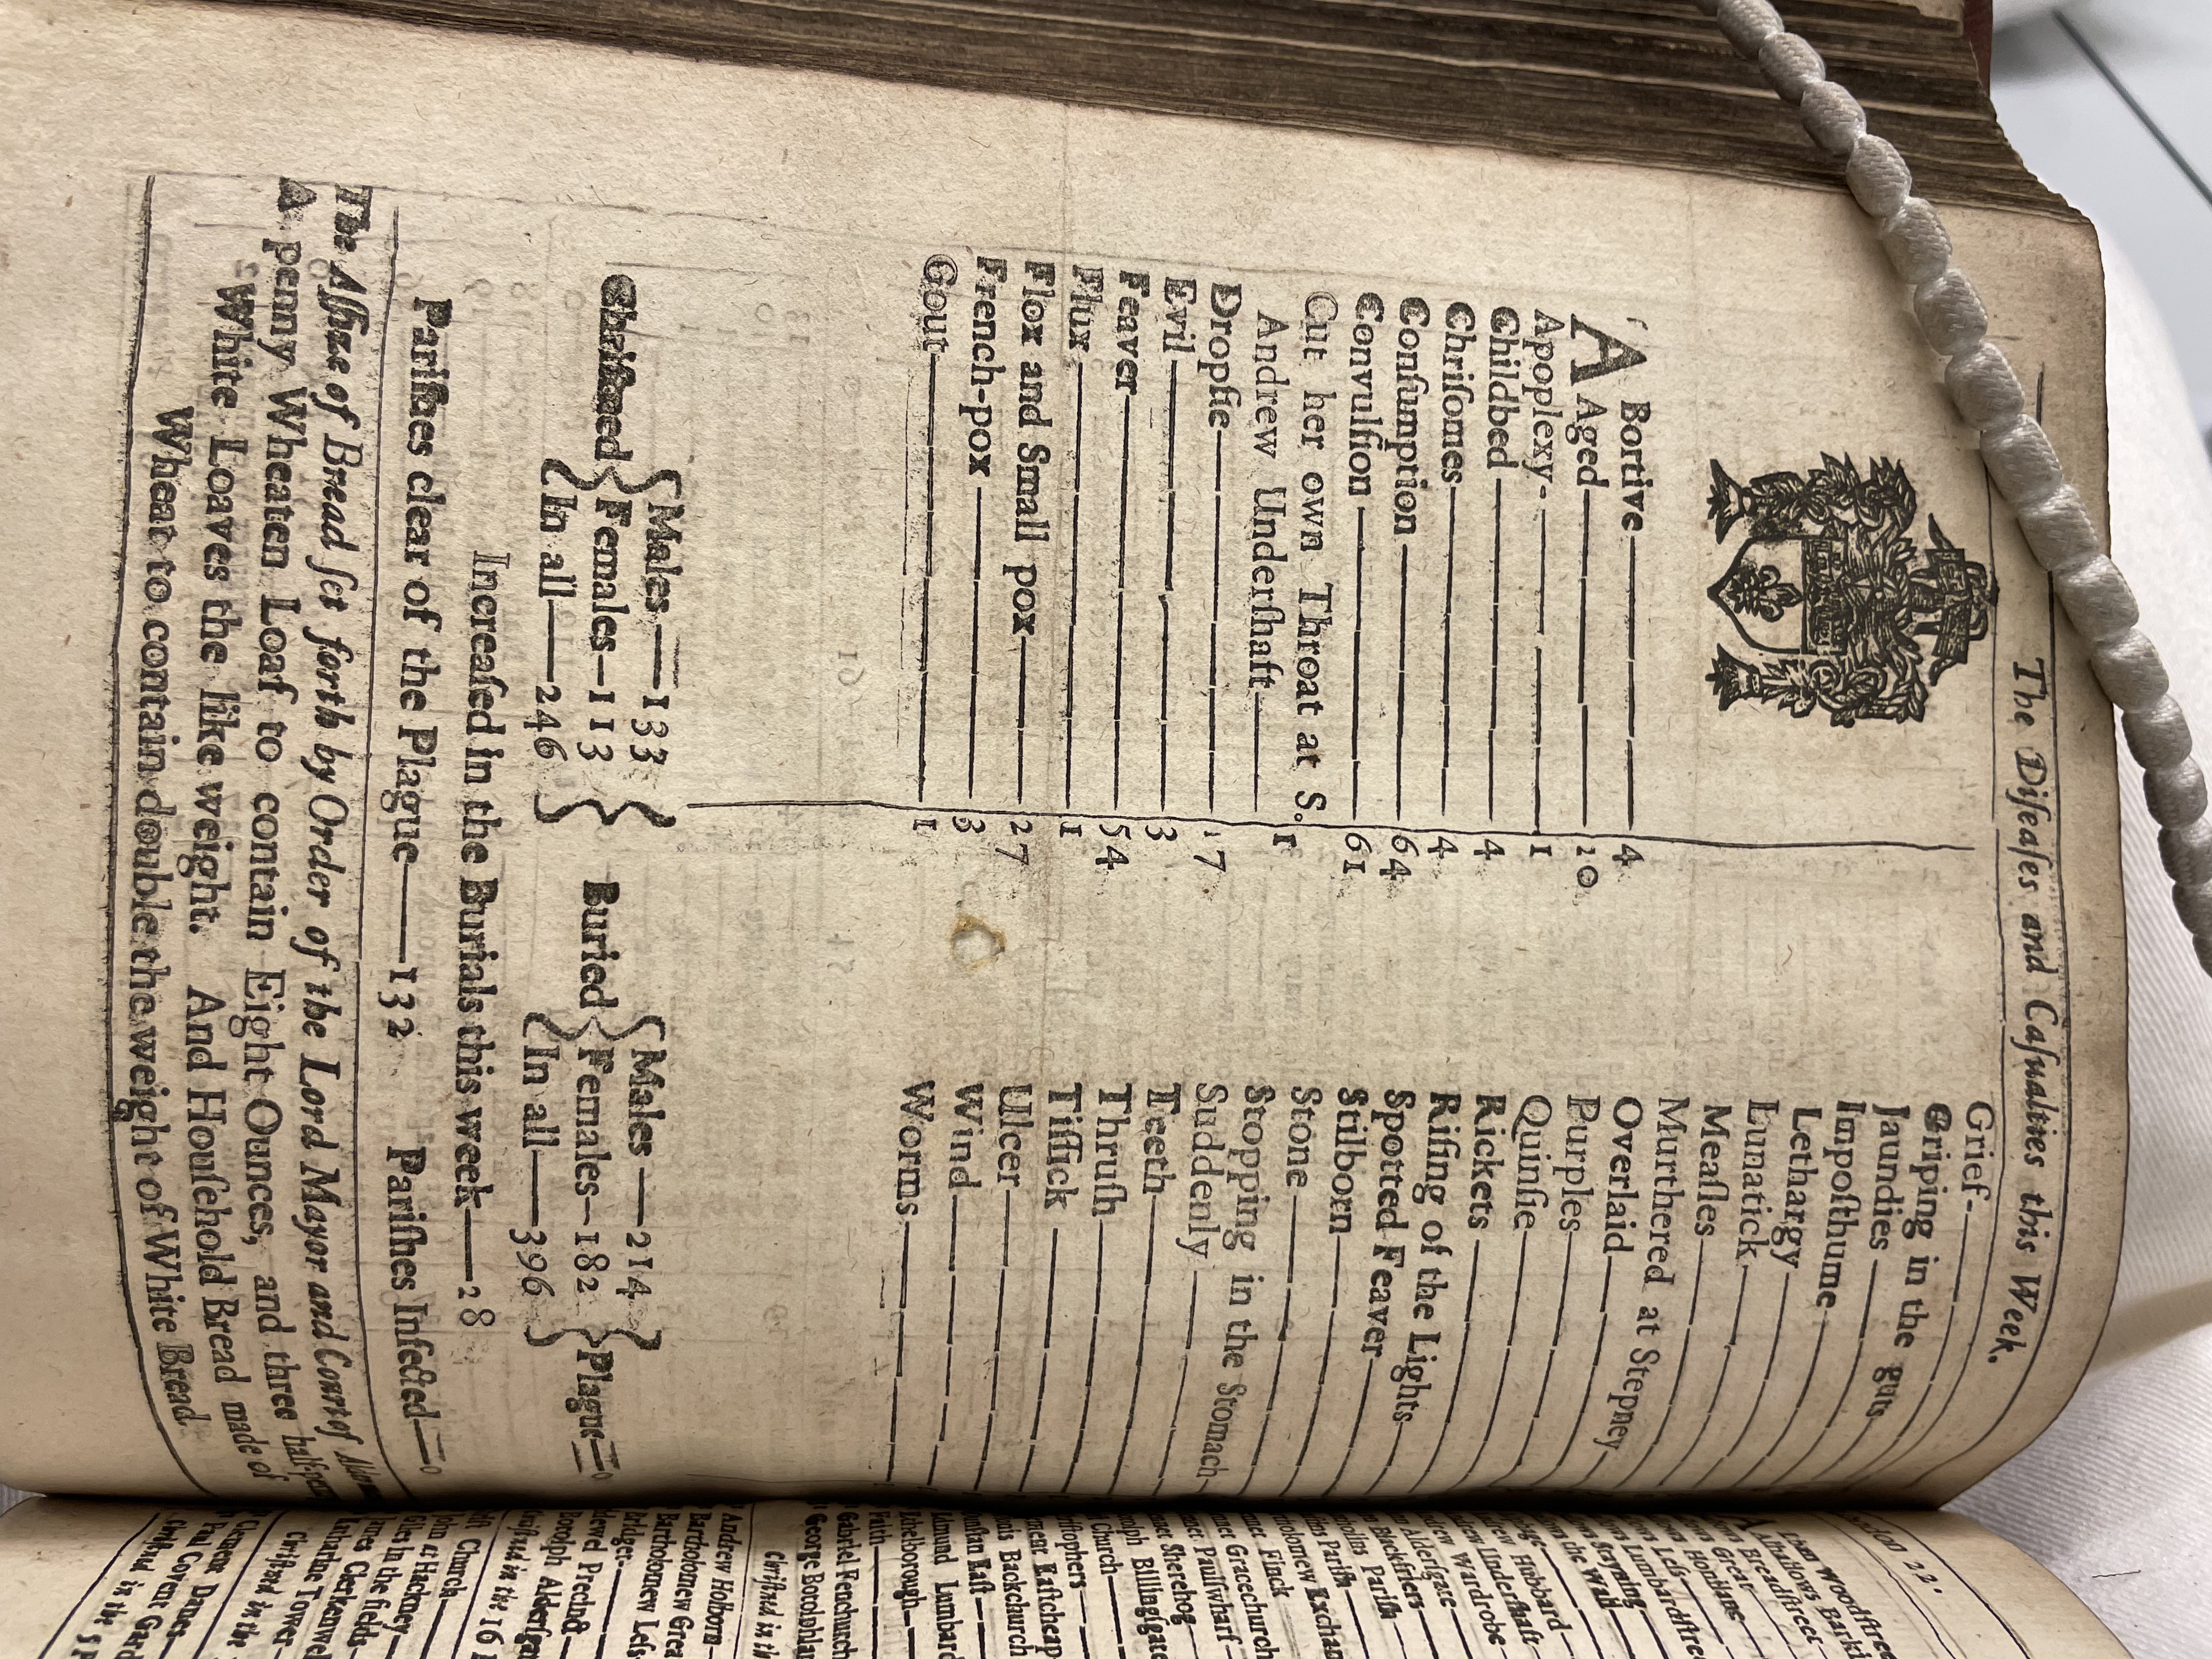 The Diſeaſes and Caſualties this Week.
A Bortive 4
Aged 10
Apoplexy 1
Childbed 4
Chriſomes 4
Conſumption 64
Convulſion 61
Cut her own Throat at S.
Andrew Underſhaft 1
Dropſie 17
Evil 3
Feaver 54
Flux 1
Flox and Small pox 27
French-pox 3
Gout 1
Grief
Griping in the guts
Jaundies
Impoſthume
Lethargy
Lunatick
Meaſles
Murthered at Stepney
Overlaid
Purples
Quinſie
Rickets
Riſing of the Lights
Spotted Feaver
Stilborn
Stone
Stopping in the Stomach
Suddenly
Teeth
Thruſh
Tiſſick
Ulcer
Wind
Worms
Chriſtned { Males 133 Females 113 In all 246 }
Buried { Males 214 Females 182 In all 396 } Plague 0
Increaſed in the Burials this week 28
Pariſhes clear of the Plague 132 Pariſhes Infected 0
The Aſſize of Bread ſet forth by Order of the Lord Mayor and Court of
A penny Wheaten Loaf to contain Eight Ounces, and three
White Loaves the like weight. And Houſehold Bread made of
Wheat to contain double the weight of White Bread.
Woodſtreet
Alhallows Barki
Breadſtreet
Great
Honilane
Leſs
Lumbardſtree
Stayning
the Wall
Hubbard
Underſhaft
Wardrobe
Alderſgate
Blackfriers
Pariſh
Pariſh
Exchan
Finck
Gracechurch
Paulſwharf
Sherehog
Billingſgate
Church
Eaſtcheap
Backchurch
Eaſt
Lumbard
Ethelborough
Faith
Gabriel Fenchurch
George Botolphlan
Chriſtned in th
Andrew Holborn
Bartholomew Grea
Bartholomew Leſs
Bridget
Bridewel Precinct
Botolph Alderſgate
Chriſtned in the 16
Chriſt Church
John at Hackney
Giles in the fields
James Clerkenwel
Katharine Tower
Chriſtned in the
Clement Danes
Paul Covent Gard
Chriſtned in the 5 P